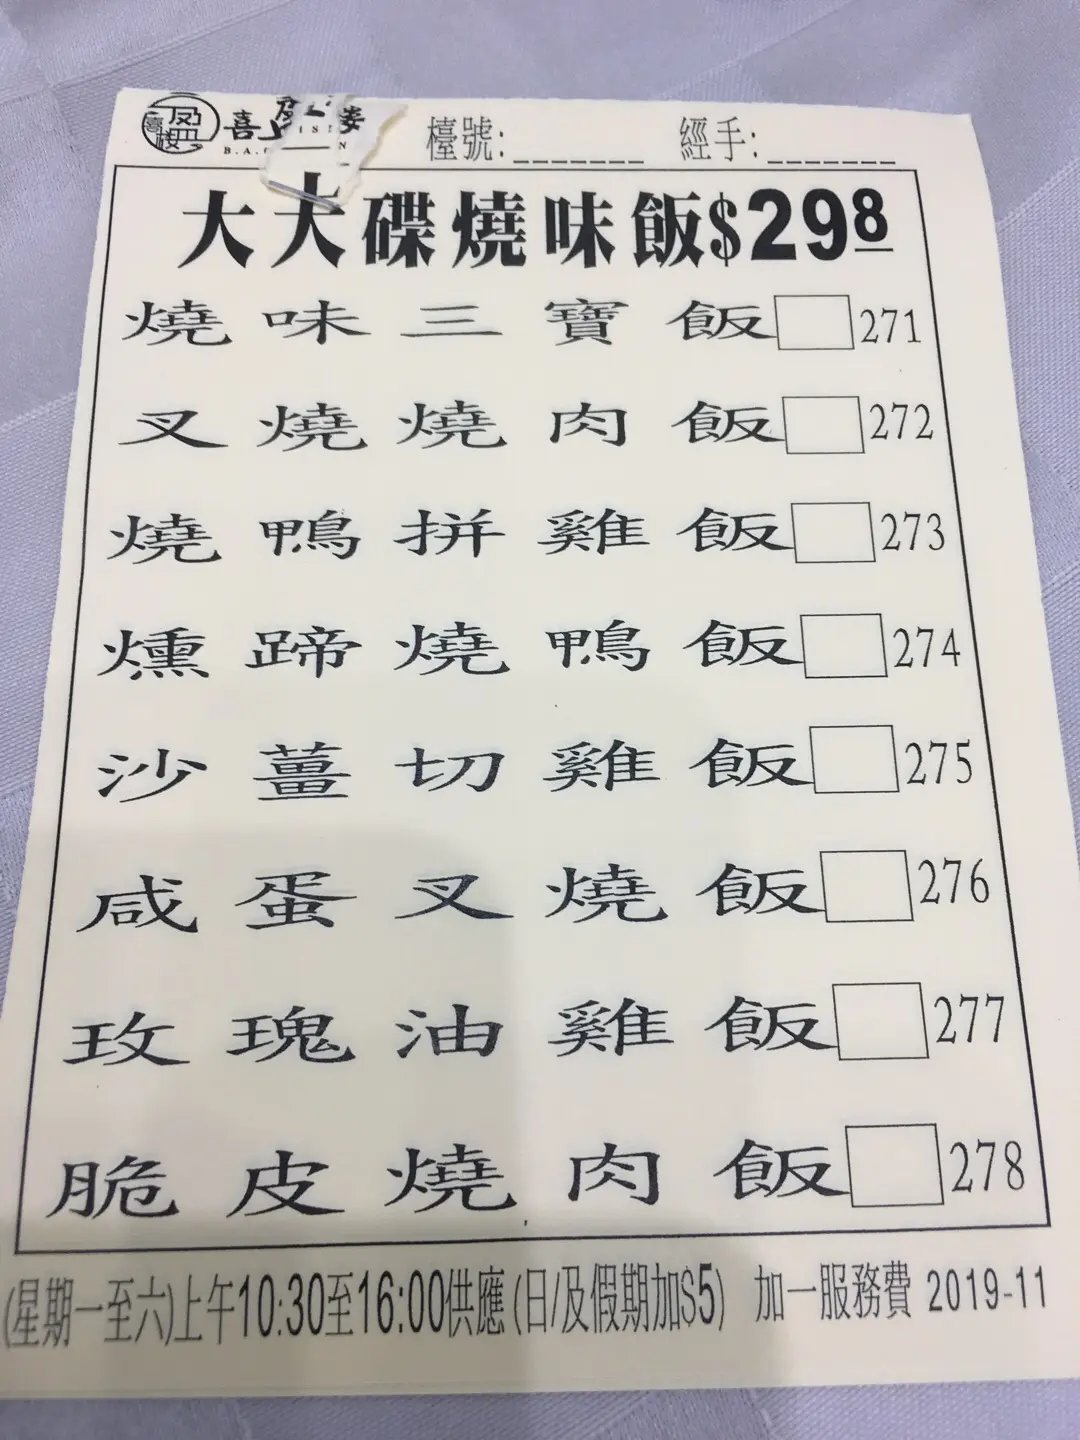 喜 樓
檯號:_______ 經手:_______
大大碟燒味飯$298
燒味三寶飯 271
叉燒燒肉飯 272
燒鴨拼雞飯 273
燻蹄燒鴨飯 274
沙薑切雞飯 275
咸蛋叉燒飯 276
玫瑰油雞飯 277
脆皮燒肉飯 278
(星期一至六)上午10:30至16:00供應(日/及假期加$5) 加一服務費 2019-11